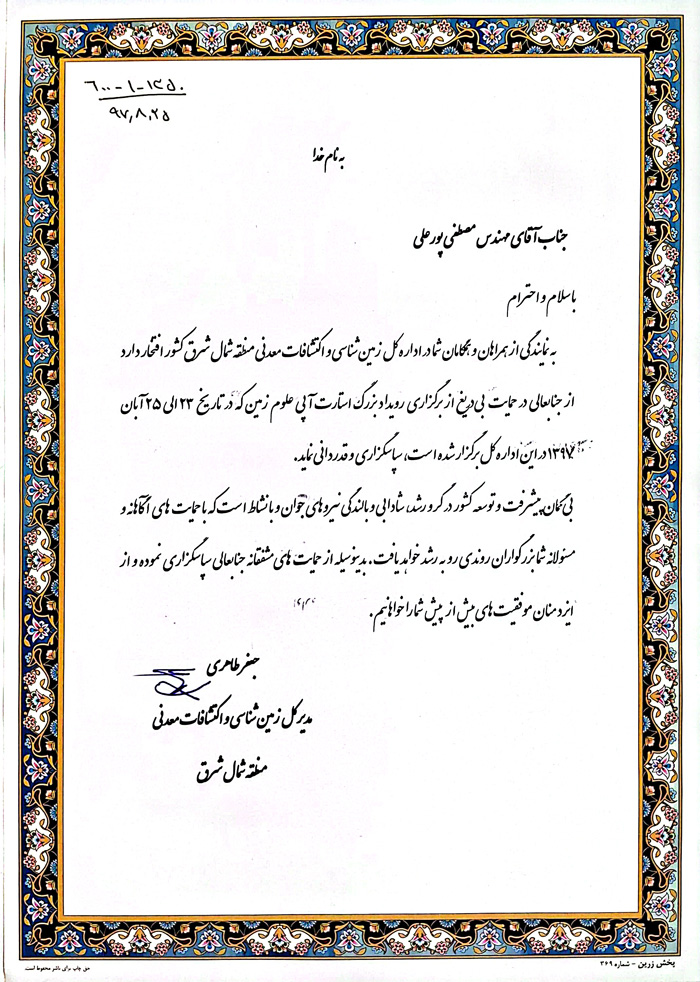 ۶۰۰-۱-۱۲۵۰
۹۷,۸,۲۵
به نام خدا
جناب آقای مهندس مصطفی پورعلی
با سلام و احترام
به نمایندگی از همراهان و همکامان شما در اداره کل زمین شناسی و اکتشافات معدنی منطقه شمال شرق کشور افتخار دارد
از جنابعالی در حمایت بی‌دریغ از برگزاری رویداد بزرگ استارت آپی علوم زمین که در تاریخ ۲۳ الی ۲۵ آبان
۱۳۹۷ در این اداره کل برگزار شده است، سپاسگزاری و قدردانی نماید.
بی گمان پیشرفت و توسعه کشور در گرو رشد، شادابی و بالندگی نیروهای جوان و بانشاط است که با حمایت های آگاهانه و
مسئولانه شما بزرگواران روندی رو به رشد خواهد یافت. بدینوسیله از حمایت های مشفقانه جنابعالی سپاسگزاری نموده و از
ایزد منان موفقیت های بیش از پیش شما را خواهانیم.
جعفر طاهری
مدیر کل زمین شناسی و اکتشافات معدنی
منطقه شمال شرق
پخش زرین - شماره ۳۶۹
حق چاپ برای ناشر محفوظ است